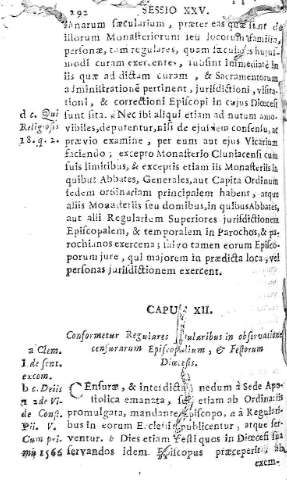 292 SESSIO XXV.
sonarum sæcularium, præter eas quæ sunt de
illorum Monasteriorum seu locorum familia,
personæ, tam regulares, quam sæculares hujus-
modi curam exercentes, subsint immediatè in
iis quæ ad dictam curam, & Sacramentorum
administrationē pertinent, jurisdictioni, visita-
tioni, & correctioni Episcopi in cujus Diœcesi
sunt sita. c Nec ibi aliqui etiam ad nutum amo-
vibiles, deputentur, nisi de ejusdem consensu, ac
prævio examine, per eum aut ejus Vicarium
faciendo; excepto Monasterio Cluniacensi cum
suis limitibus, & exceptis etiam iis Monasteriis in
quibus Abbates, Generales, aut Capita Ordinum
sedem ordinariam principalem habent, atque
aliis Monasteriis seu domibus, in quibus Abbates,
aut alii Regularium Superiores jurisdictionem
Episcopalem, & temporalem in Parochos, & pa-
rochianos exercent; salvo tamen eorum Episco-
porum jure, qui majorem in prædicta loca, vel
personas jurisdictionem exercent.
d c. Qui
Religiosis
18. q. 2.
CAPUT XII.
Conformetur Regulares sæcularibus in observatione
censurarum Episcopalium, & Festorum
Diœcesis.
CEnsuræ, & interdicta nedum à Sede Apo-
stolica emanata, sed etiam ab Ordinariis
promulgata, mandante Episcopo, a à Regulari-
bus in eorum Ecclesiis publicentur, atque ser-
ventur. & Dies etiam Festi quos in Diœcesi sua
servandos idem Episcopus præceperit ab
exem-
a Clem.
1. de sent.
excom.
Pii. V.
Cum pri-
mū 1566